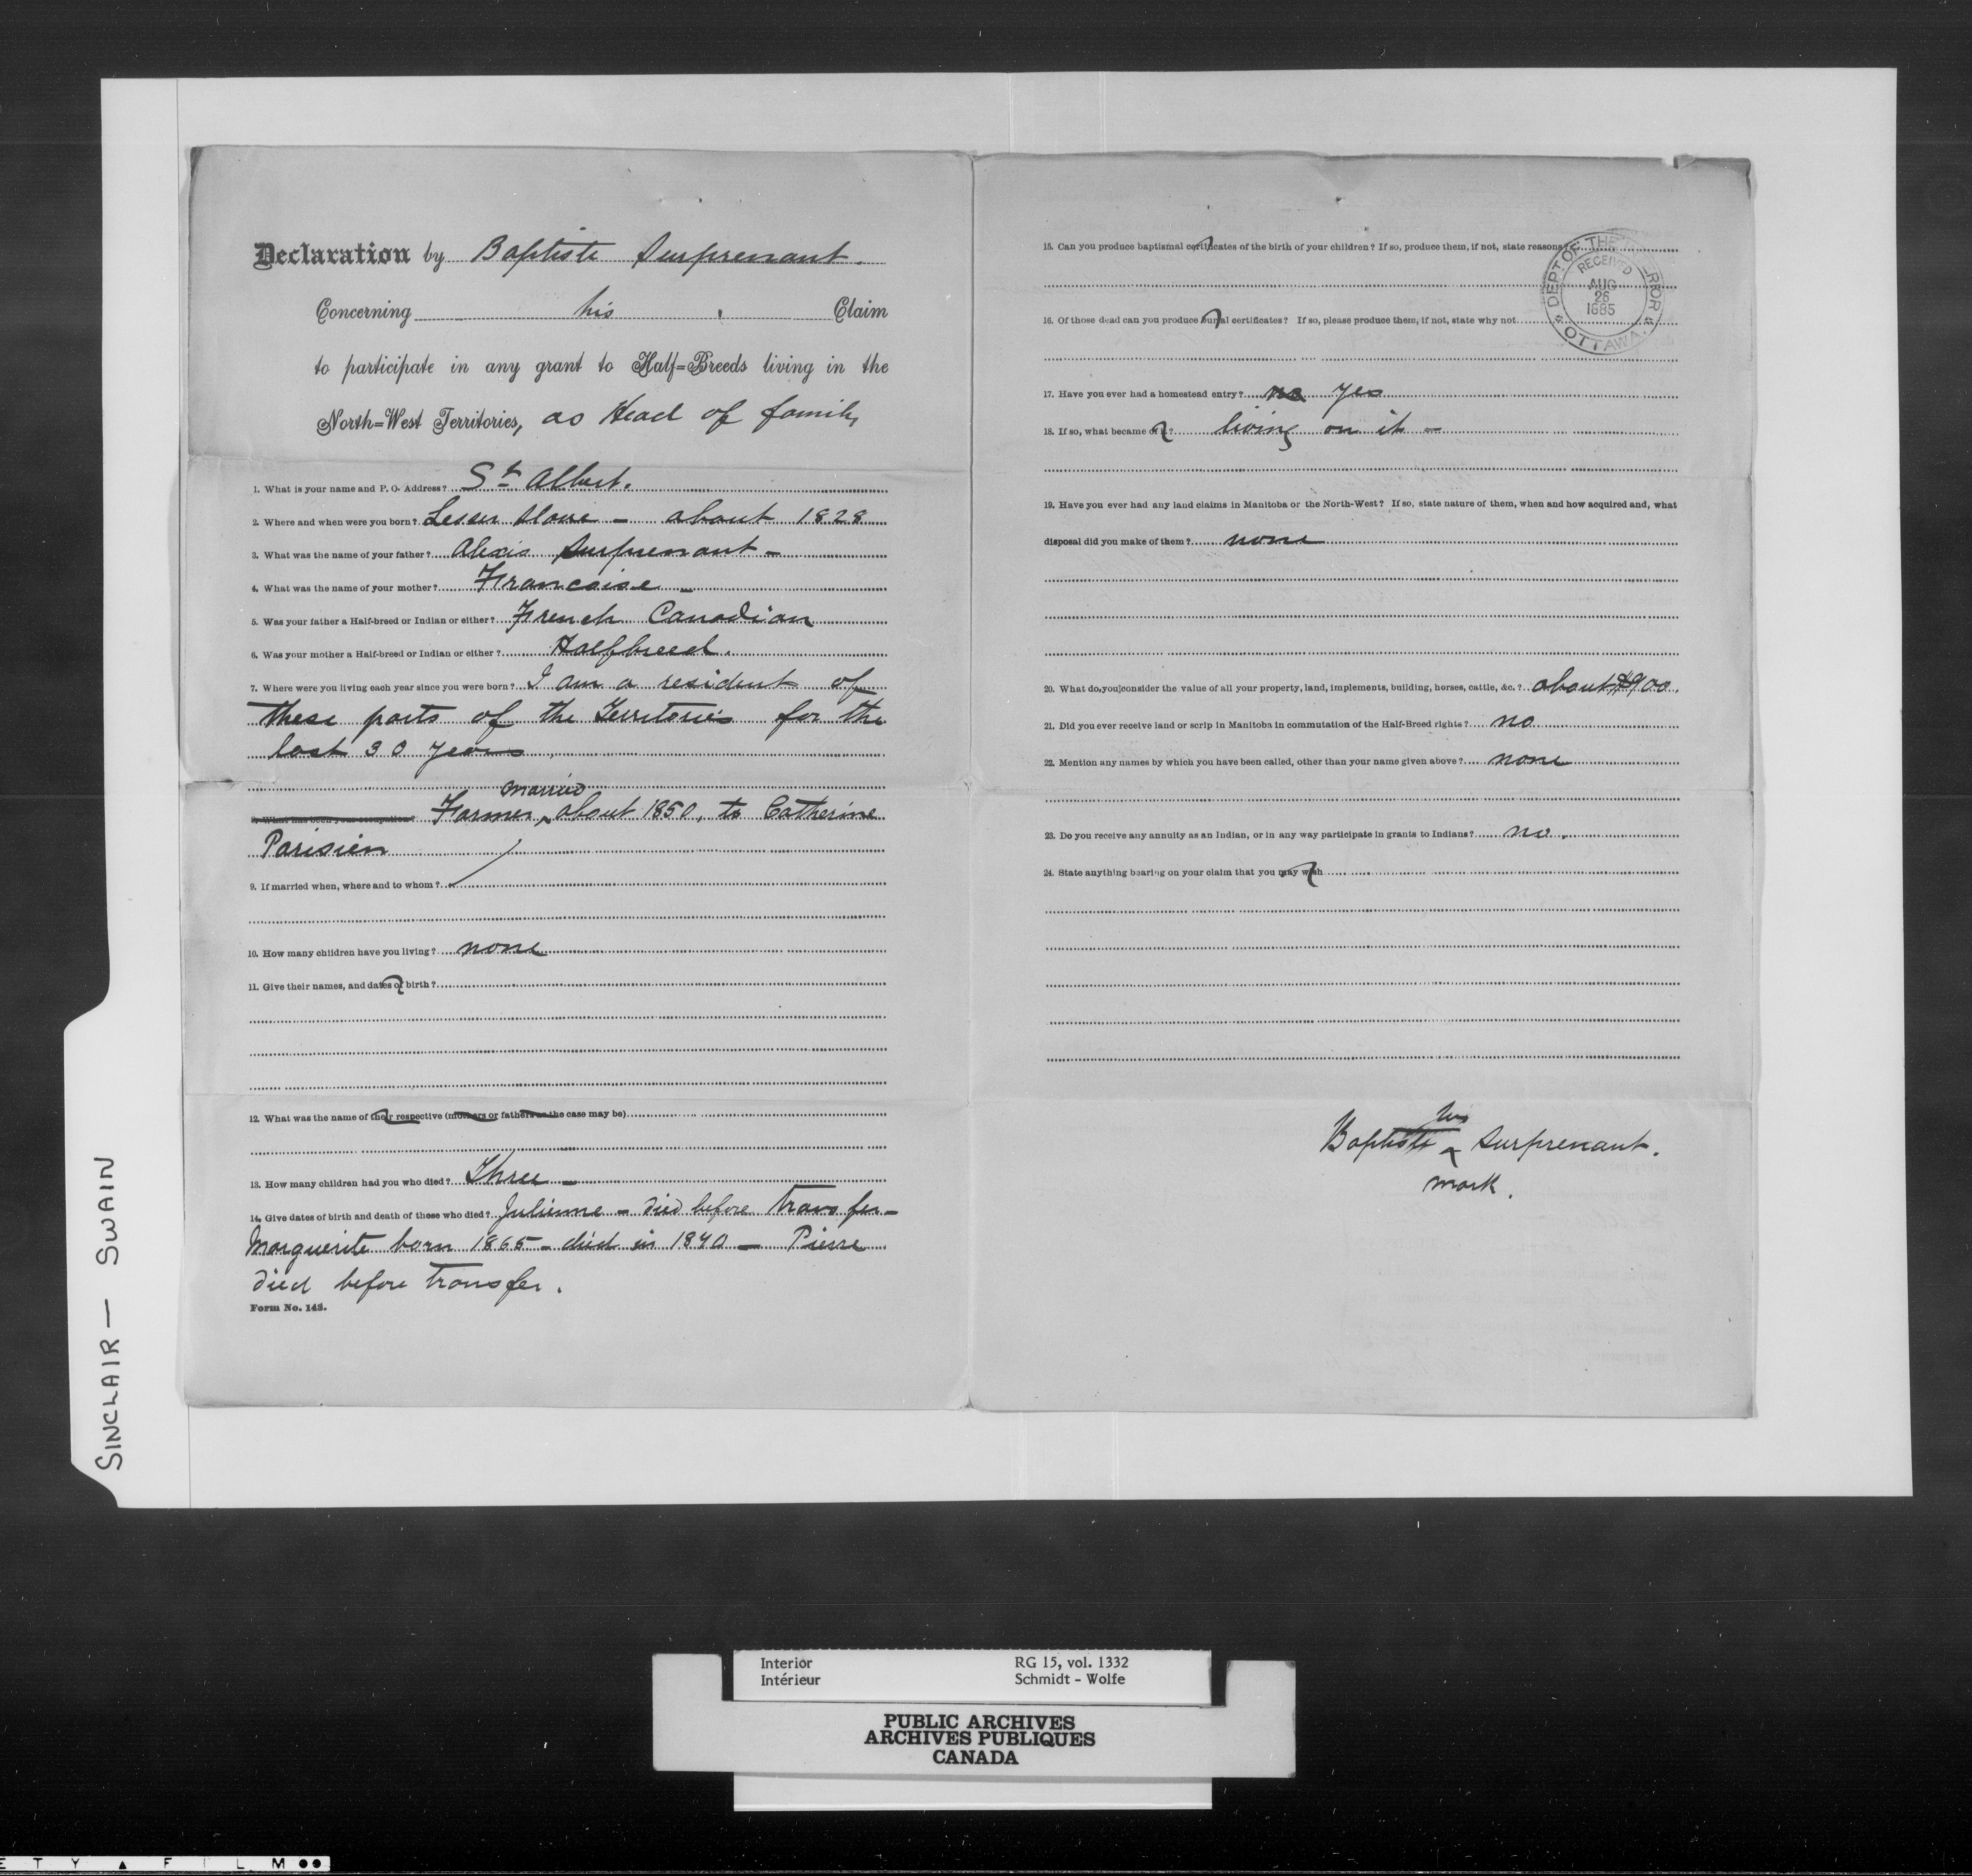 Declaration by Baptiste Surprenant.
Concerning his Claim
to participate in any grant to Half=Breeds living in the
North=West Territories, as Head of family
1. What is your name and P. O. Address? St Albert.
2. Where and when were you born? Lesser Slave - about 1828
3. What was the name of your father? Alexis Surprenant -
4. What was the name of your mother? Francoise -
5. Was your father a Half-breed or Indian or either? French Canadian
6. Was your mother a Half-breed or Indian or either? Halfbreed.
7. Where were you living each year since you were born? I am a resident of
these parts of the Territories for the
last 30 years
married
8. What has been your occupation? Farmer ^ about 1850, to Catherine
Parisien
9. If married when, where and to whom?
10. How many children have you living? none
11. Give their names, and dates of birth?
12. What was the name of their respective (mothers or fathers as the case may be)
13. How many children had you who died? Three -
14. Give dates of birth and death of those who died? Julienne - died before transfer -
Marguerite born 1865 - died in 1870 - Pierre
died before transfer.
Form No. 143.
15. Can you produce baptismal certificates of the birth of your children? If so, produce them, if not, state reasons
16. Of those dead can you produce burial certificates? If so, please produce them, if not, state why not
DEPT OF THE INTERIOR
RECEIVED
AUG
26
1885
OTTAWA
17. Have you ever had a homestead entry? no yes
18. If so, what became of it? living on it -
19. Have you ever had any land claims in Manitoba or the North-West? If so, state nature of them, when and how acquired and, what
disposal did you make of them? none
20. What do you consider the value of all your property, land, implements, building, horses, cattle, &c.? about $900.
21. Did you ever receive land or scrip in Manitoba in commutation of the Half-Breed rights? no
22. Mention any names by which you have been called, other than your name given above? none
23. Do you receive any annuity as an Indian, or in any way participate in grants to Indians? no.
24. State anything bearing on your claim that you may wish
his
Baptiste x Surprenant.
mark.
SINCLAIR — SWAIN
Interior RG 15, vol. 1332
Intérieur Schmidt - Wolfe
PUBLIC ARCHIVES
ARCHIVES PUBLIQUES
CANADA
E T Y ▲ F I L M ●●